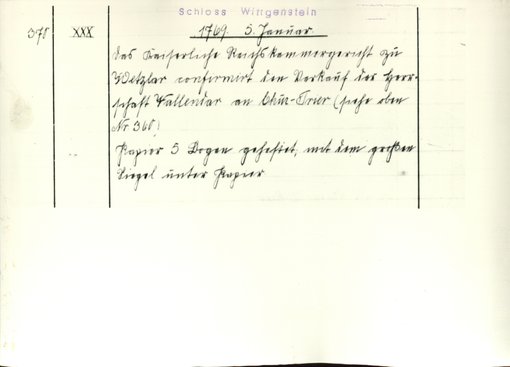 Schloss Wittgenstein
378 XXX 1769. 3. Januar.
Das Kaiserliche Reichskammergericht zu
Wetzlar confirmirt den Verkauf der Herr-
schaft Vallendar an Chur-Trier (siehe oben
Nr 360)
Papier 5 Bogen geheftet, mit dem großen
Siegel unter Papier